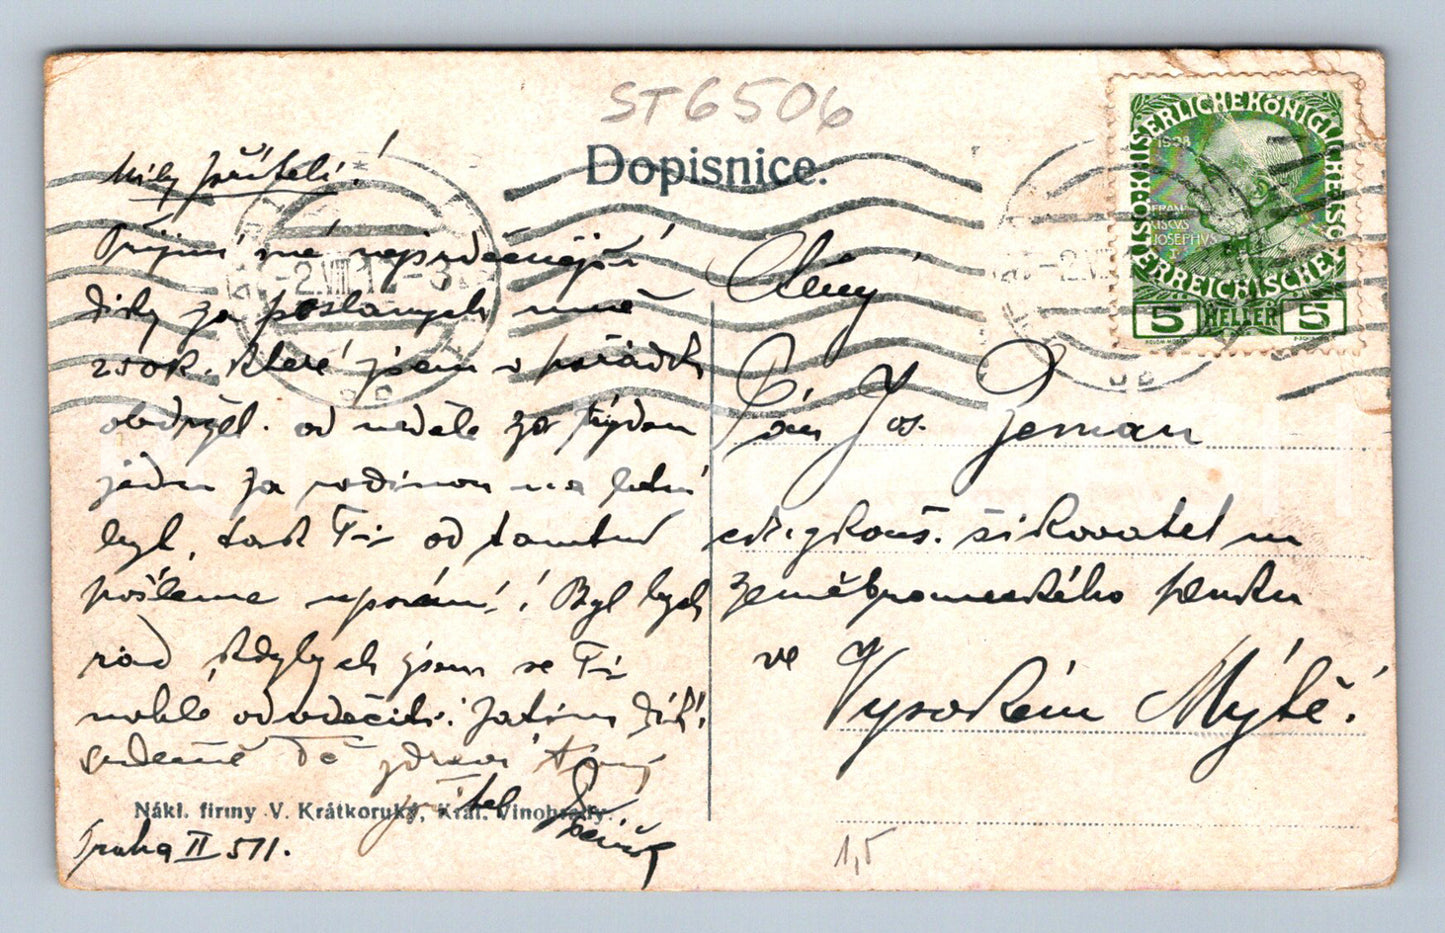 ST6506
Dopisnice.
Milý příteli!
Přijmi mé nejsrdečnější
díky za poslaných mně
250K. které jsem v pořádku
obdržel. od neděle za týden
jedu za rodinou na letní
byt, tak Ti od tamtud
pošleme psaní! Byl bych
rád kdybych jsem se Ti
mohl odvděčiti. Zatím dík!
srdečně Tě zdraví Tvůj
přítel
Praha II 511.
Nákl. firmy V. Krátkoruký, Král. Vinohrady.
Ctěný
Pán Jos. Zeman
šikovatel
zeměbraneckého pluku
ve Vysokém Mýtě!
1,5
-2.VIII.12-8
KAISERLICHE KÖNIGLICHE ÖSTERREICHISCHE
1908
FRAN
CISCVS
JOSEPHVS
I
5 HELLER 5